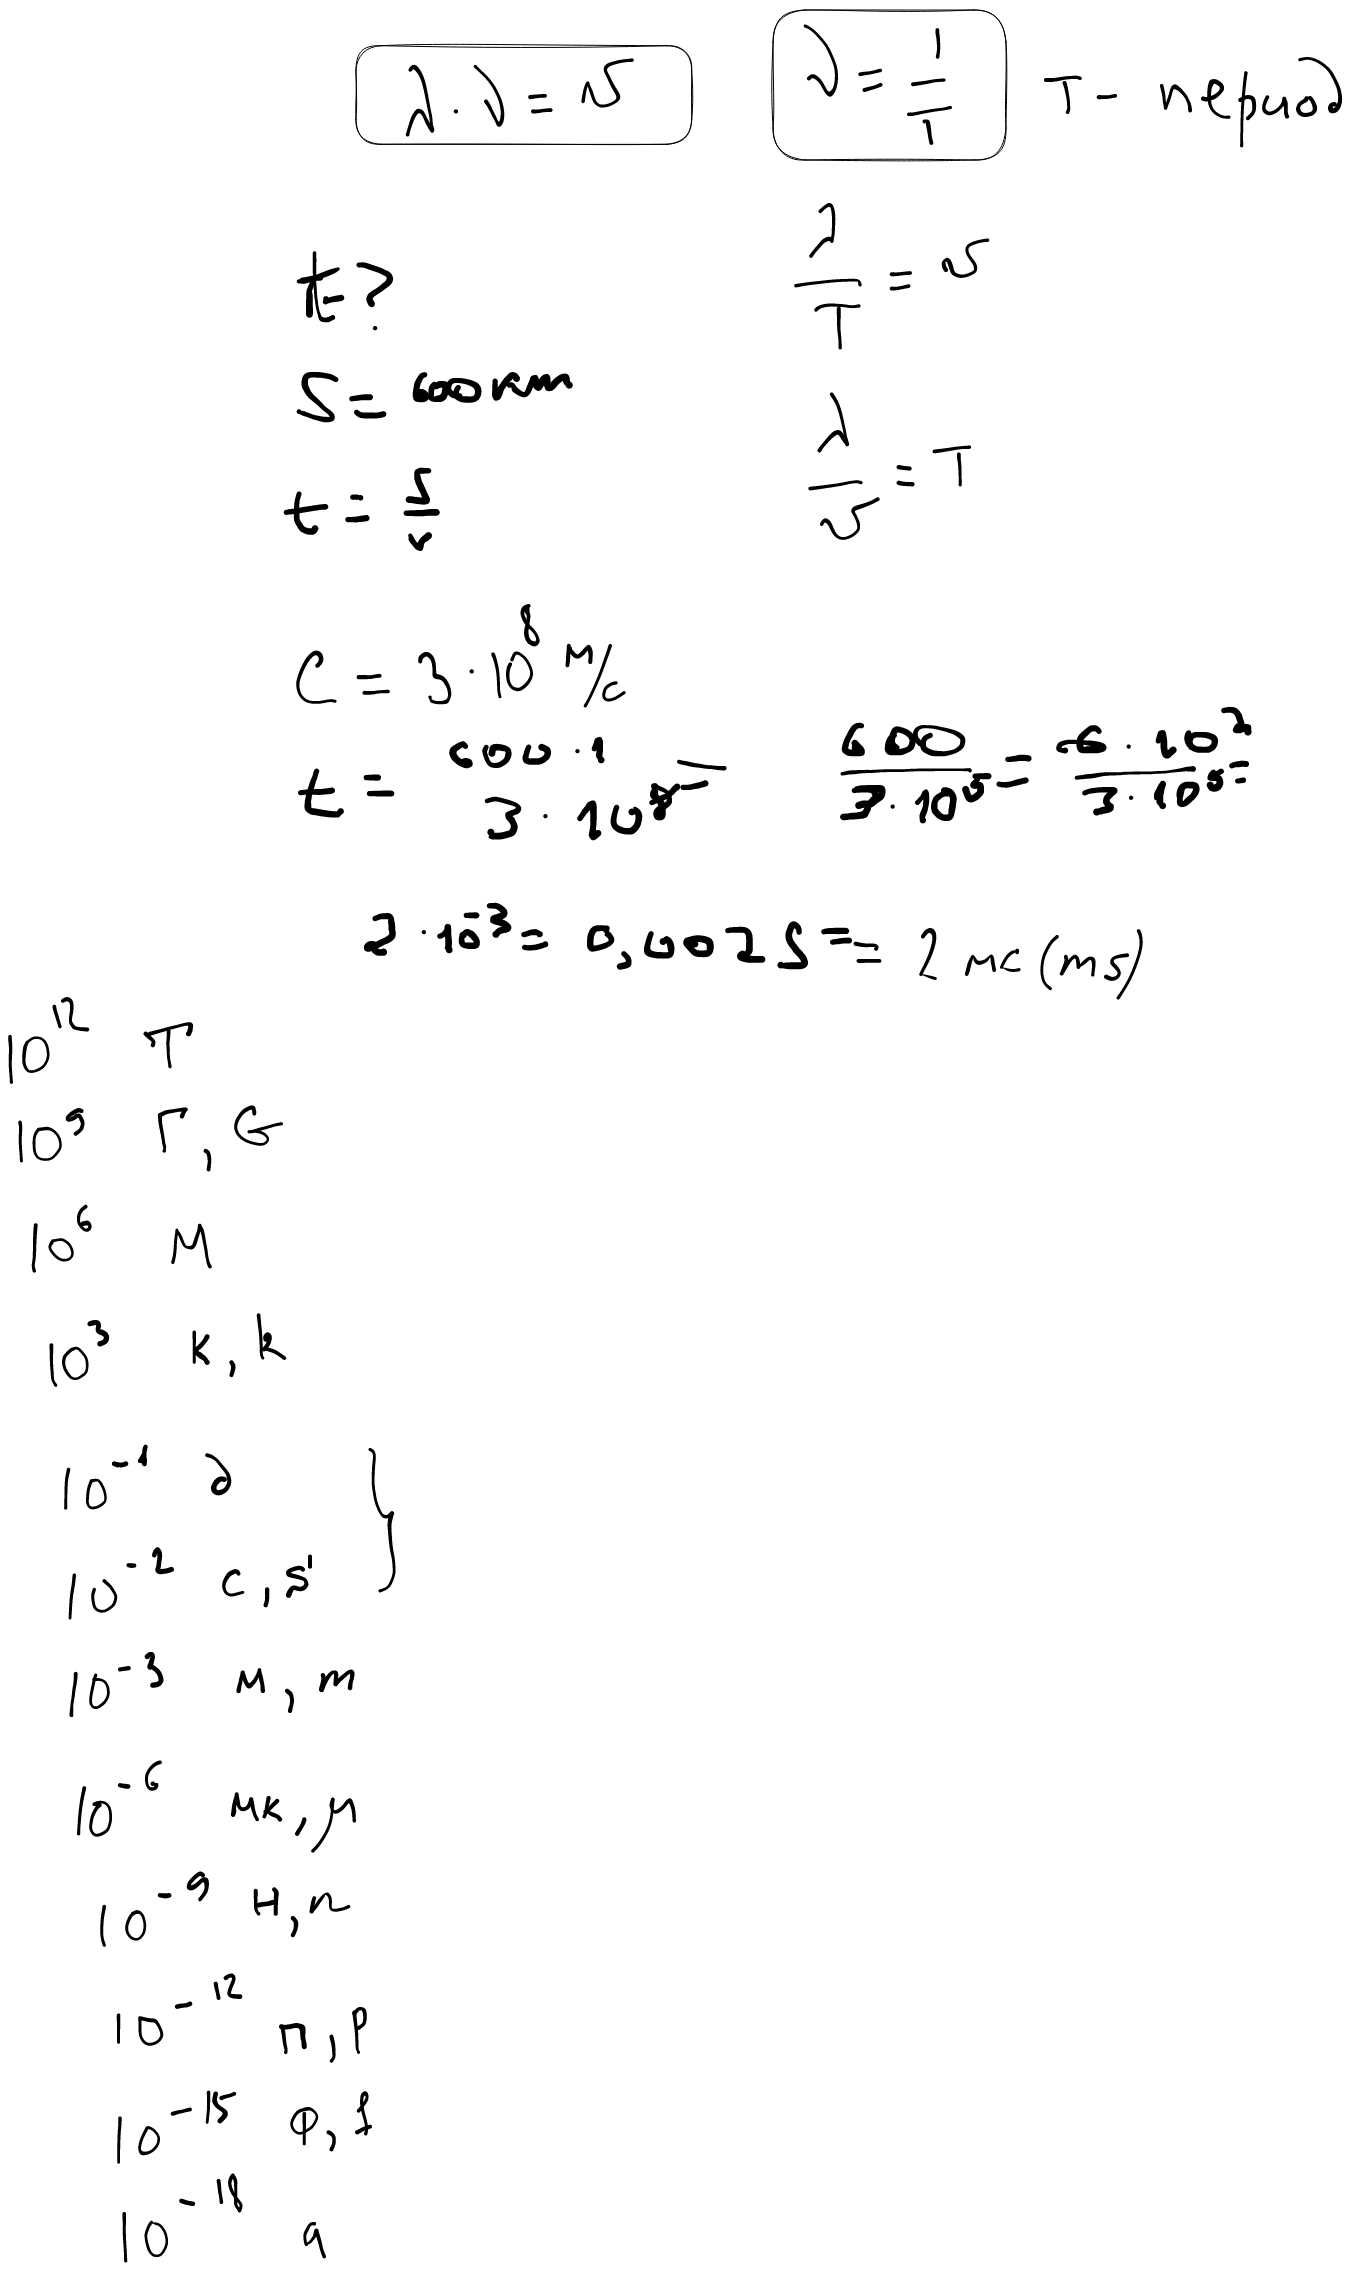 λ·ν = v
ν = 1/T T - период
λ/T = v
λ/v = T
t - ?
S = 600 км
t = S/v
C = 3·10⁸ м/c
t = 600·1 / 3·10⁸ = 600 / 3·10⁵ = 6·10² / 3·10⁵ =
2·10⁻³ = 0,002 S = = 2 мс (ms)
10¹² Т
10⁹ Г, G
10⁶ М
10³ к, k
10⁻¹ д
10⁻² с, s
10⁻³ м, m
10⁻⁶ мк, μ
10⁻⁹ н, n
10⁻¹² п, p
10⁻¹⁵ ф, f
10⁻¹⁸ a